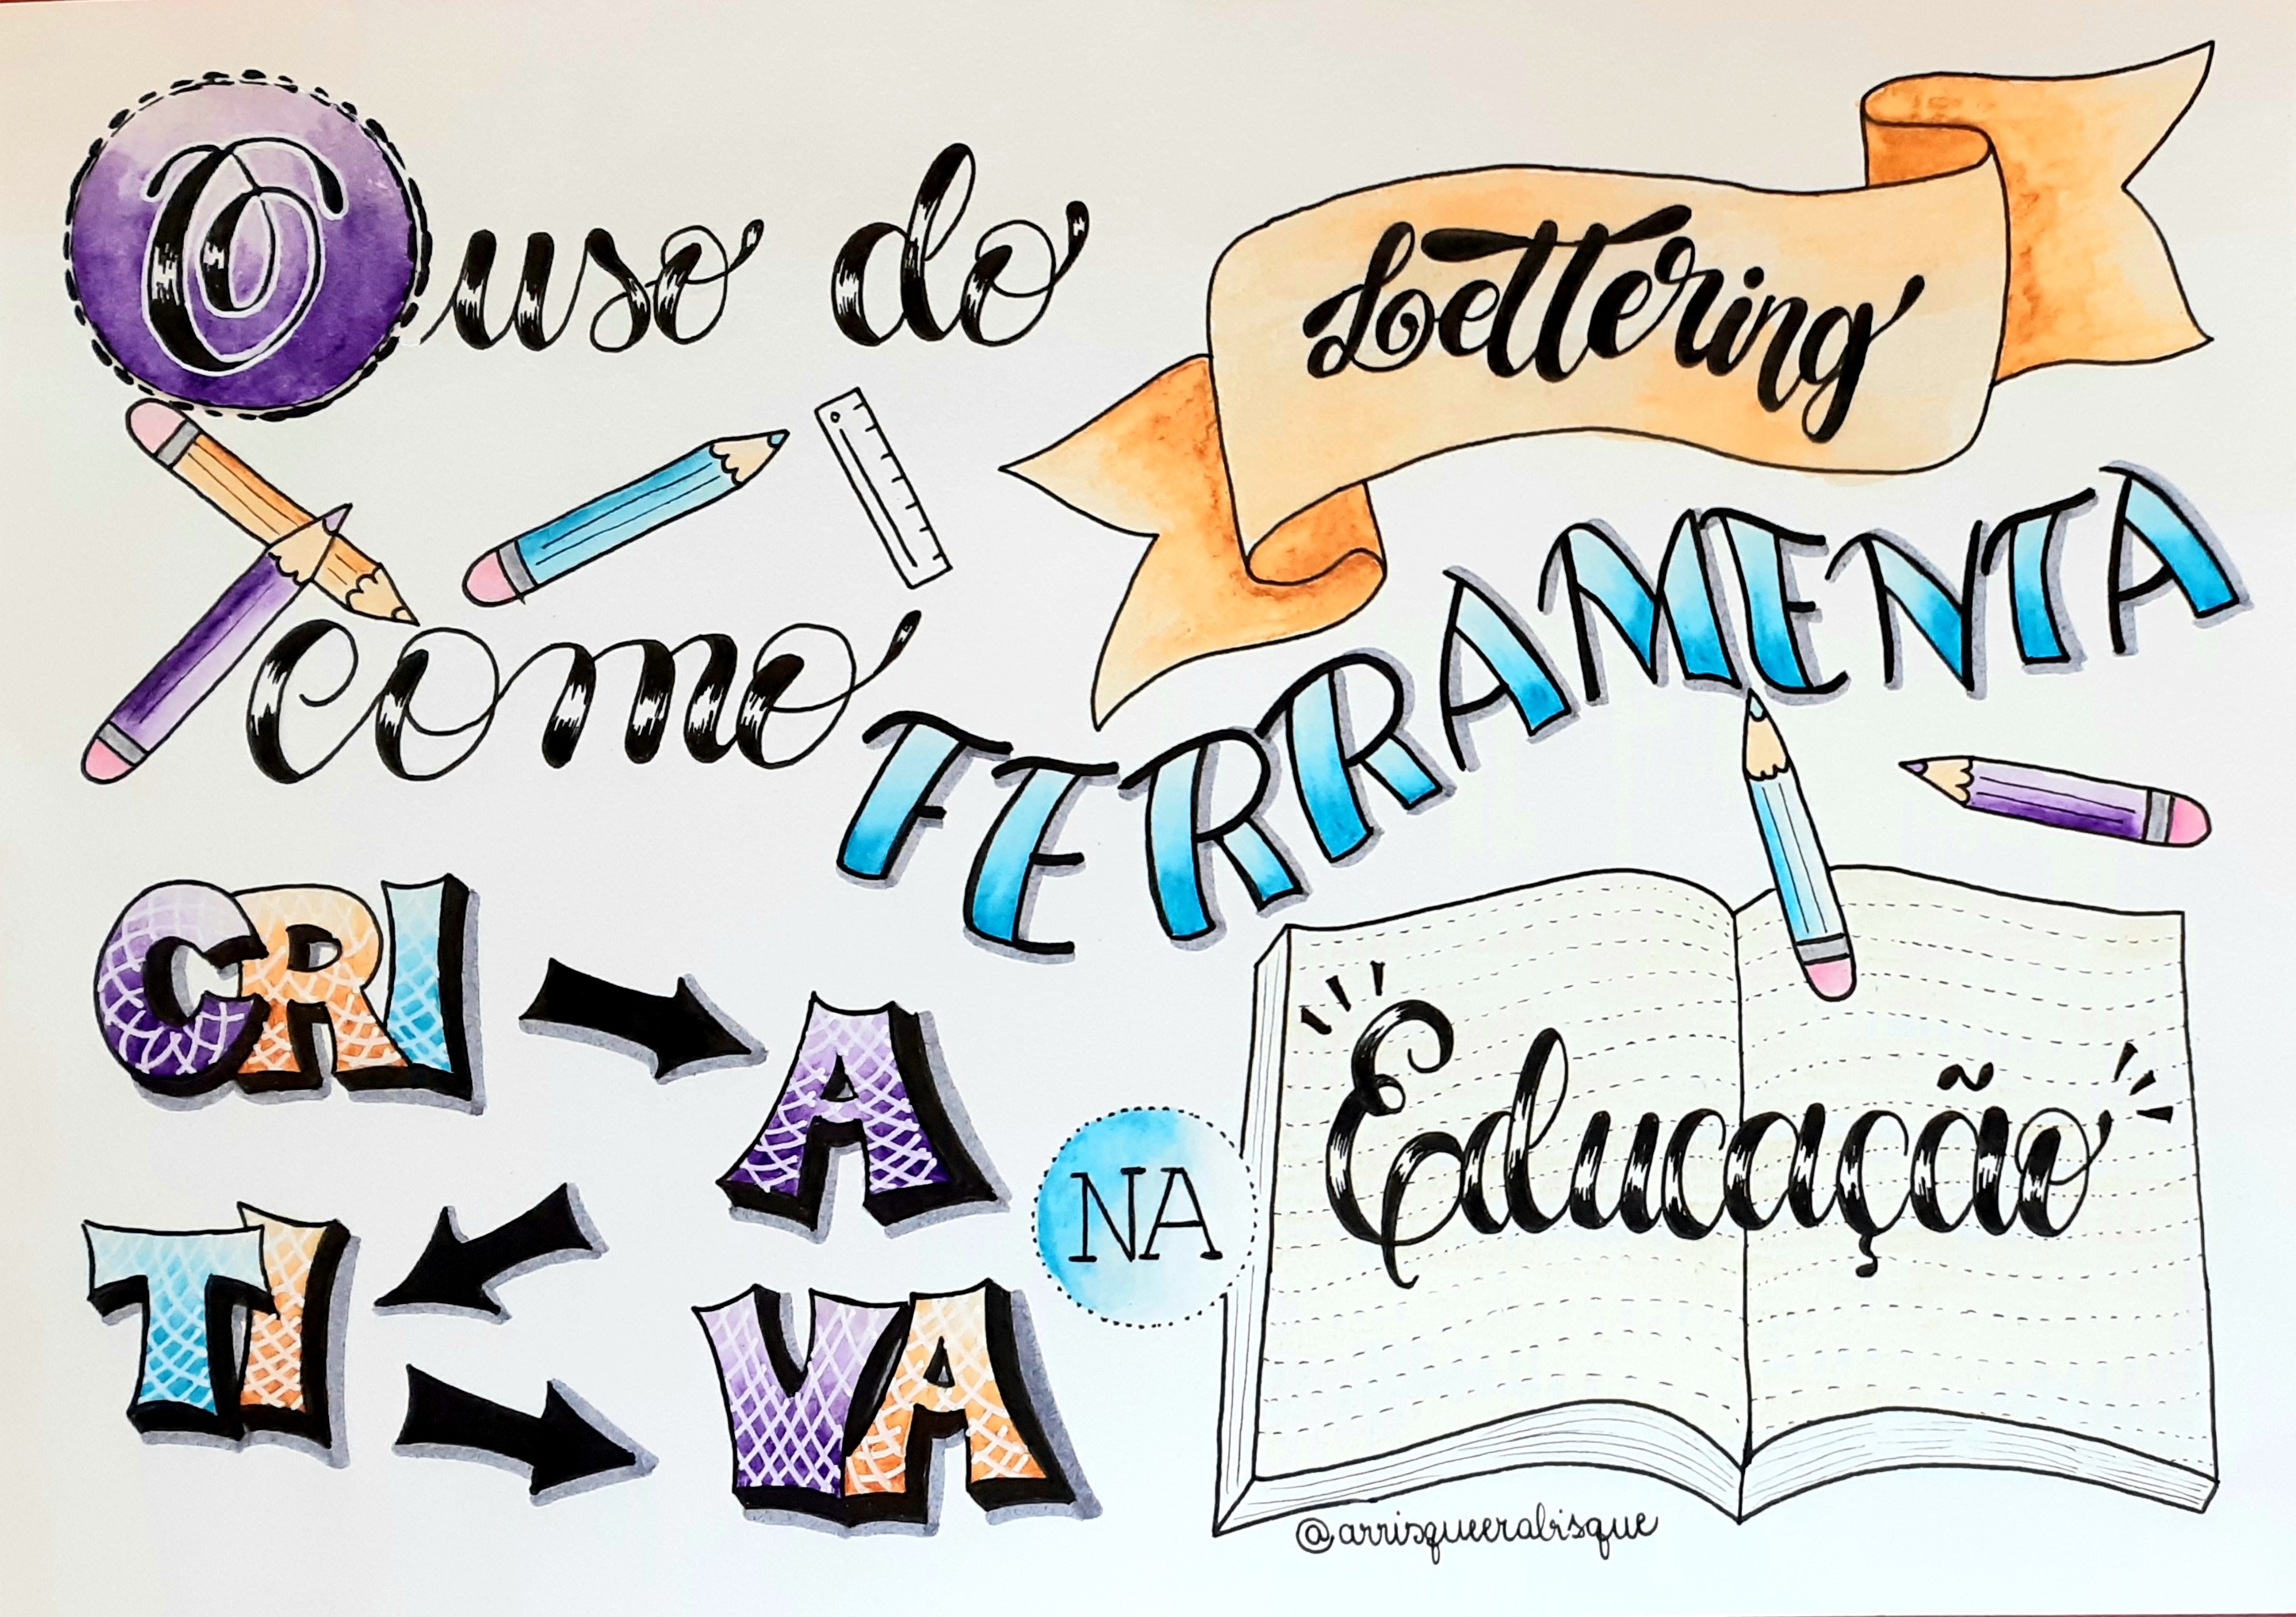 O uso do
Lettering
como
FERRAMENTA
CRI
A
TI
VA
NA
Educação
@arrisqueerabisque